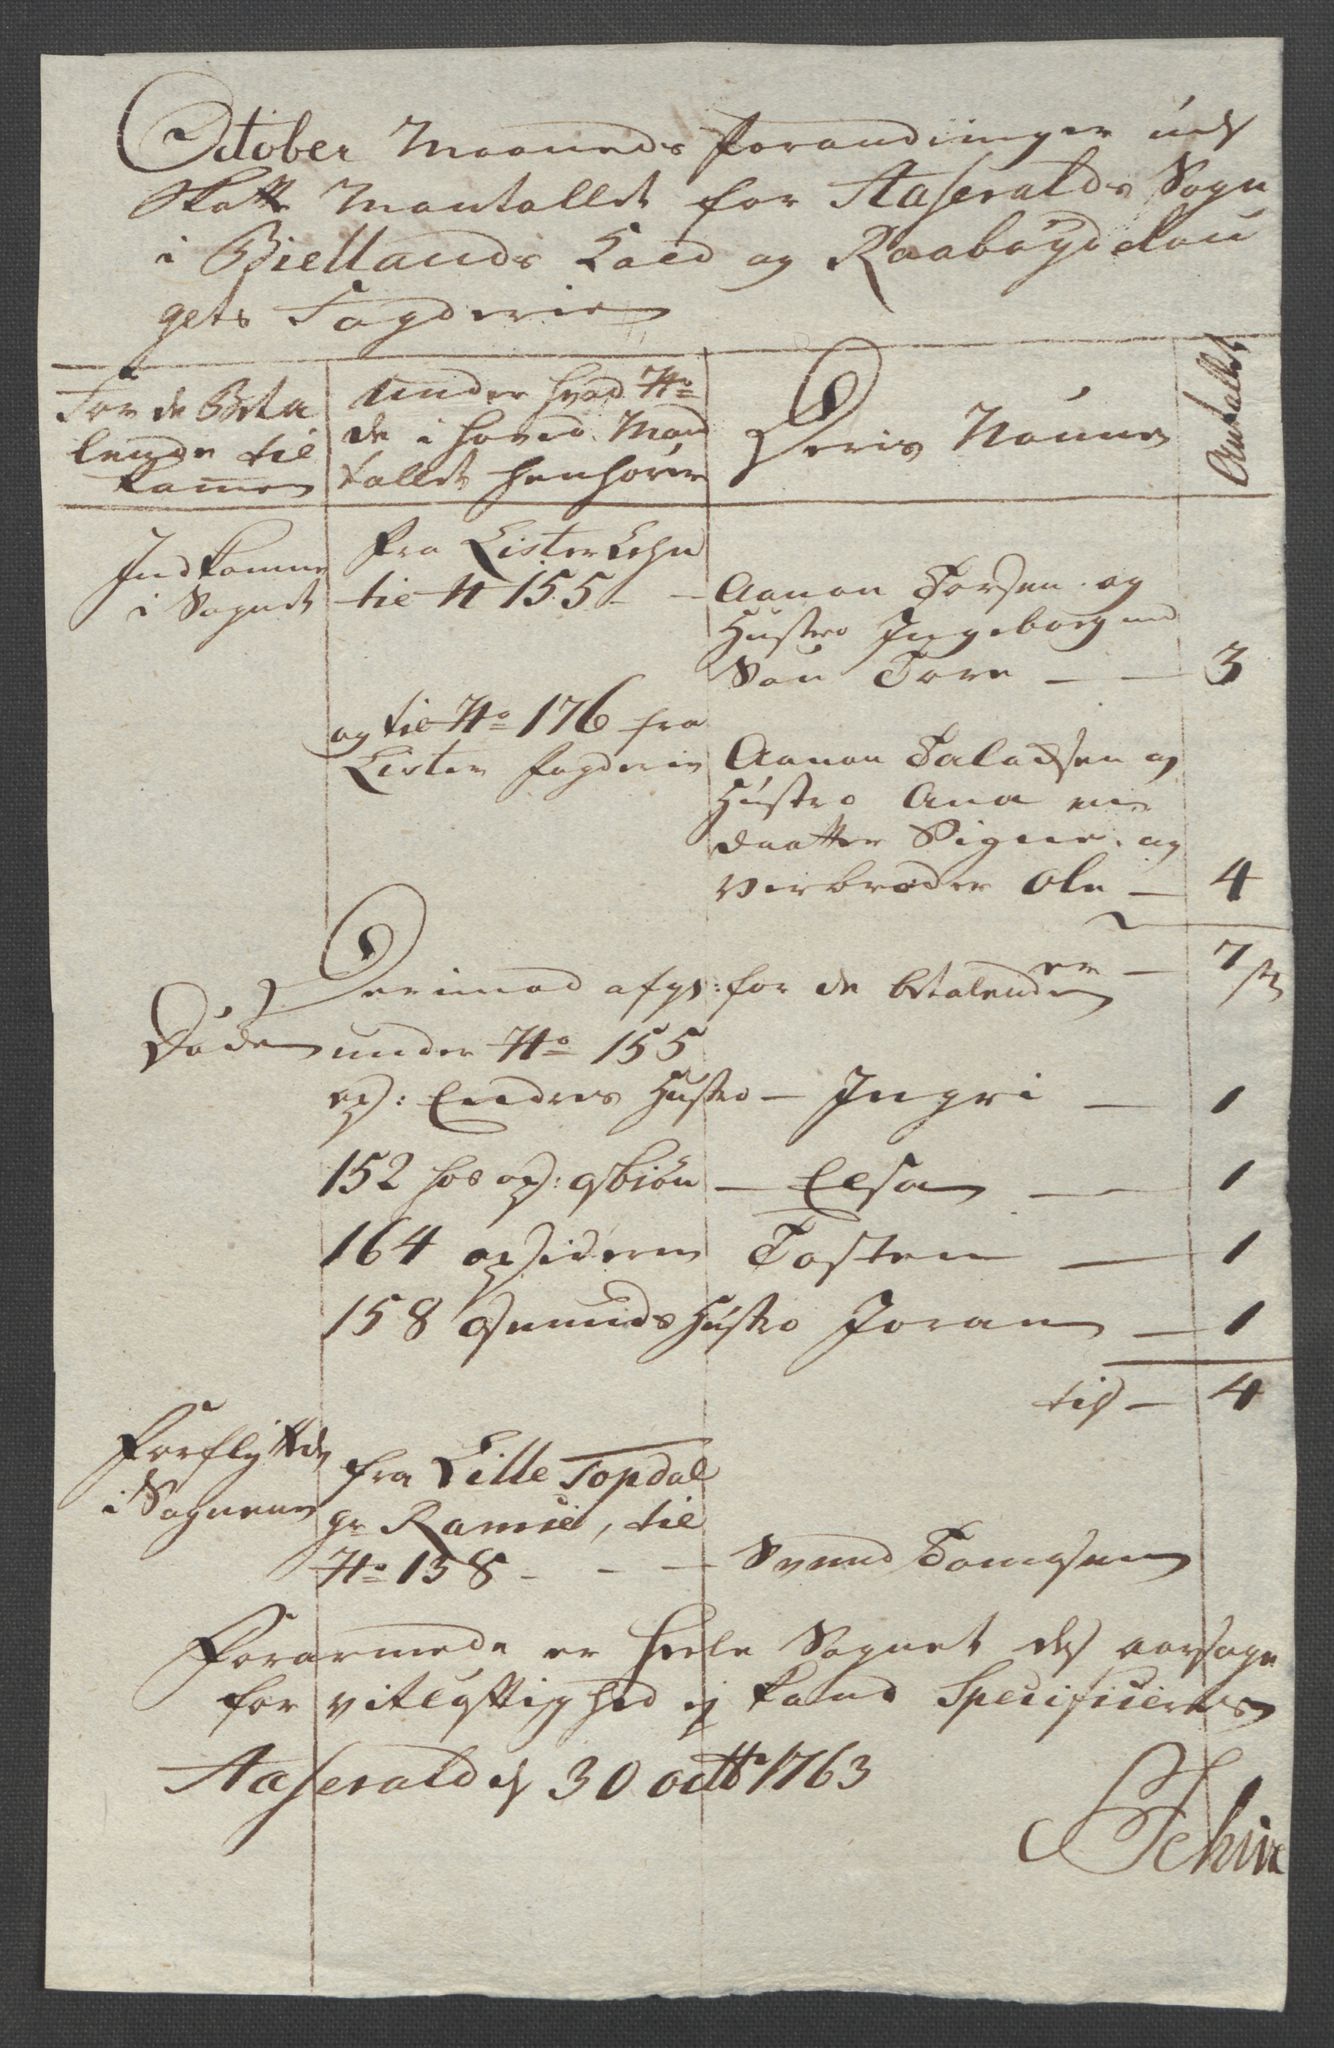 October Maaneds Forandringer udj
Skatte Mantallet for Aaseralds Sogn
i Biellands Gield og Raabøygdelau
gets Fogderie
For de Beta
lende til
komen
under hvad No
de i hoved Man
tallet henhører
Deris Naune
Antallet
Indkomne
i Sognet
fra Lister Lehn
til N 155 - -
Aanon Torsen og
Hustro Ingeborg med
Søn Tore — — 3
og til No 176 fra
Lister fogderie
Aanon Taladsen og
Hustro Ana en
daatter Signe og
verbroder Ole — 4
er — 7
Derimod afg: for de betalende
Døde under No 155
op: Endres Hustro — Ingri — 1
152 hos op: Osbiøn — Elsa — 1
164 opsidern Tosten — 1
158 Osmunds Hustro Joran — 1
til — 4
Forflyttede
i Sognene
fra Lille Topdal
gr Ramse, til
No 158 - - -
Svend Tomesen
Forarmede er heele Sognet des aarsage
for vitløftighed ej kand Specificeres
Aaserald d 30 octb 1763
Schive